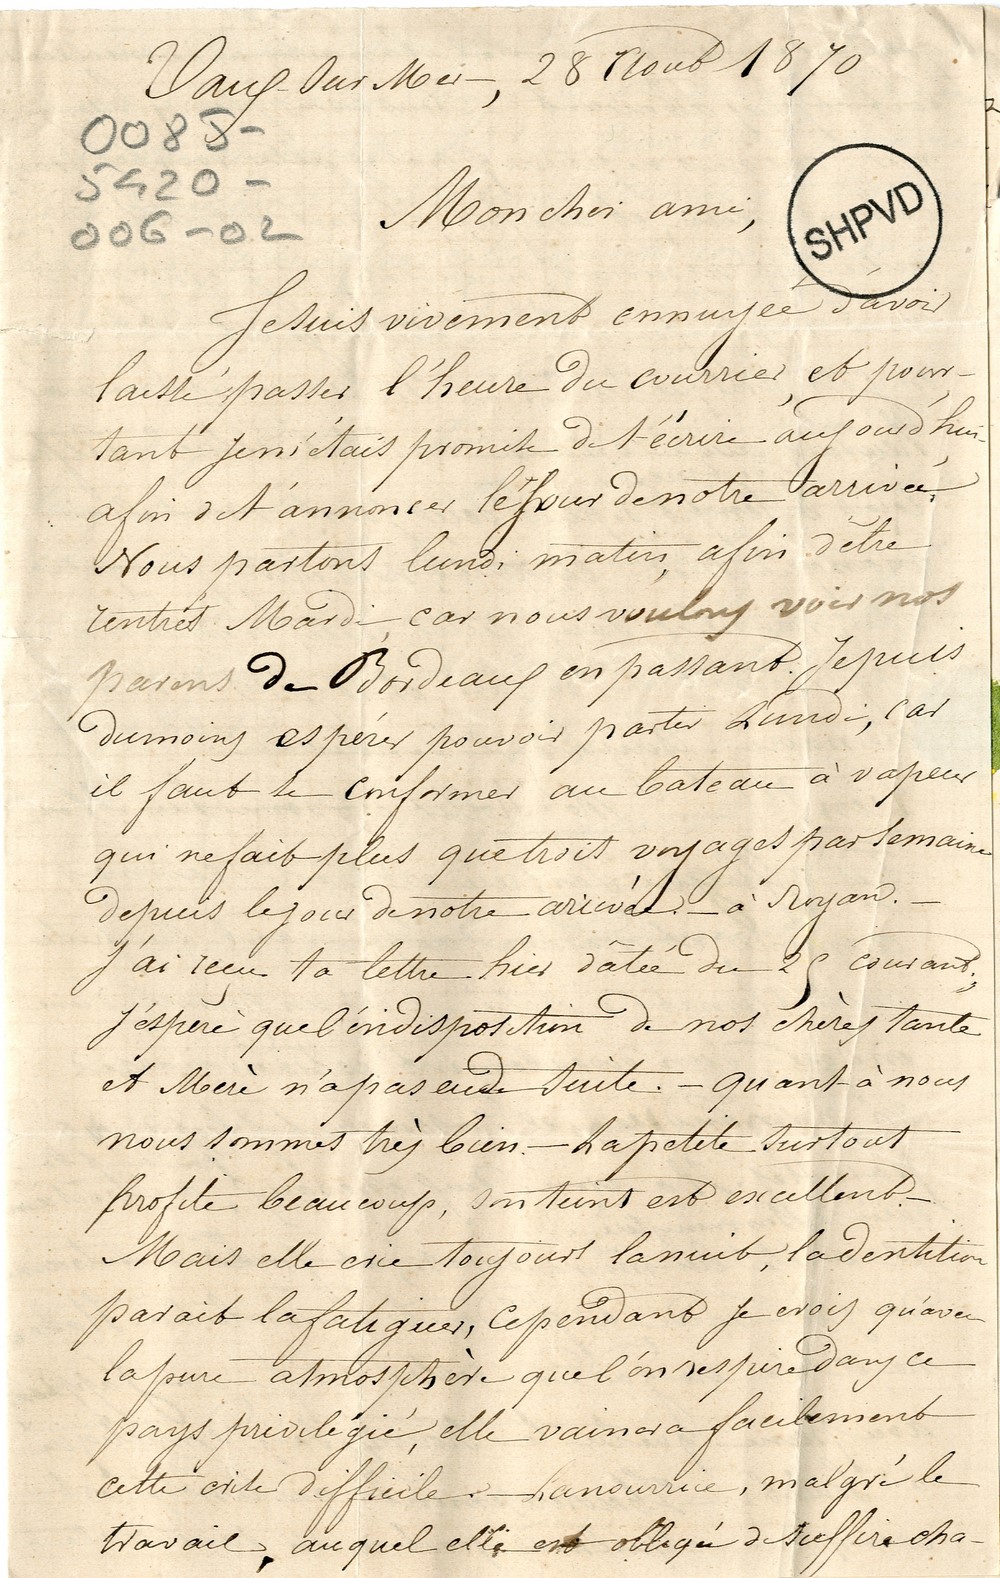 Vaux-sur-Mer, 28 Aout 1870
0085-
5420-
006-02
Mon cher ami,
SHPVD
Je suis vivement ennuyée d'avoir
laissé passer l'heure du courrier, et pour-
tant je m'étais promise de t'écrire aujourd'hui
afin de t'annoncer le jour de notre arrivée.
Nous partons lundi matin, afin d'être
rentrés Mardi, car nous voulons voir nos
parens de Bordeaux en passant. Je puis
du moins espérer pouvoir partir Lundi, car
il faut se conformer au bateau à vapeur
qui ne fait plus que trois voyages par semaine
depuis le jour de notre arrivée - à Royan. -
J'ai reçu ta lettre hier dâtée du 25 courant,
j'espère que l'indisposition de nos chères tante
et Mère n'a pas eu de suite. - quant à nous
nous sommes très bien. - La petite surtout
profite beaucoup, son teint est excellent. -
Mais elle crie toujours la nuit, la dentition
parait la fatiguer, cependant je crois qu'avec
la pure atmosphère que l'on respire dans ce
pays privilégié, elle vaincra facilement
cette crise difficile. - La nourrice, malgré le
travail, auquel elle est obligée de suffire cha-